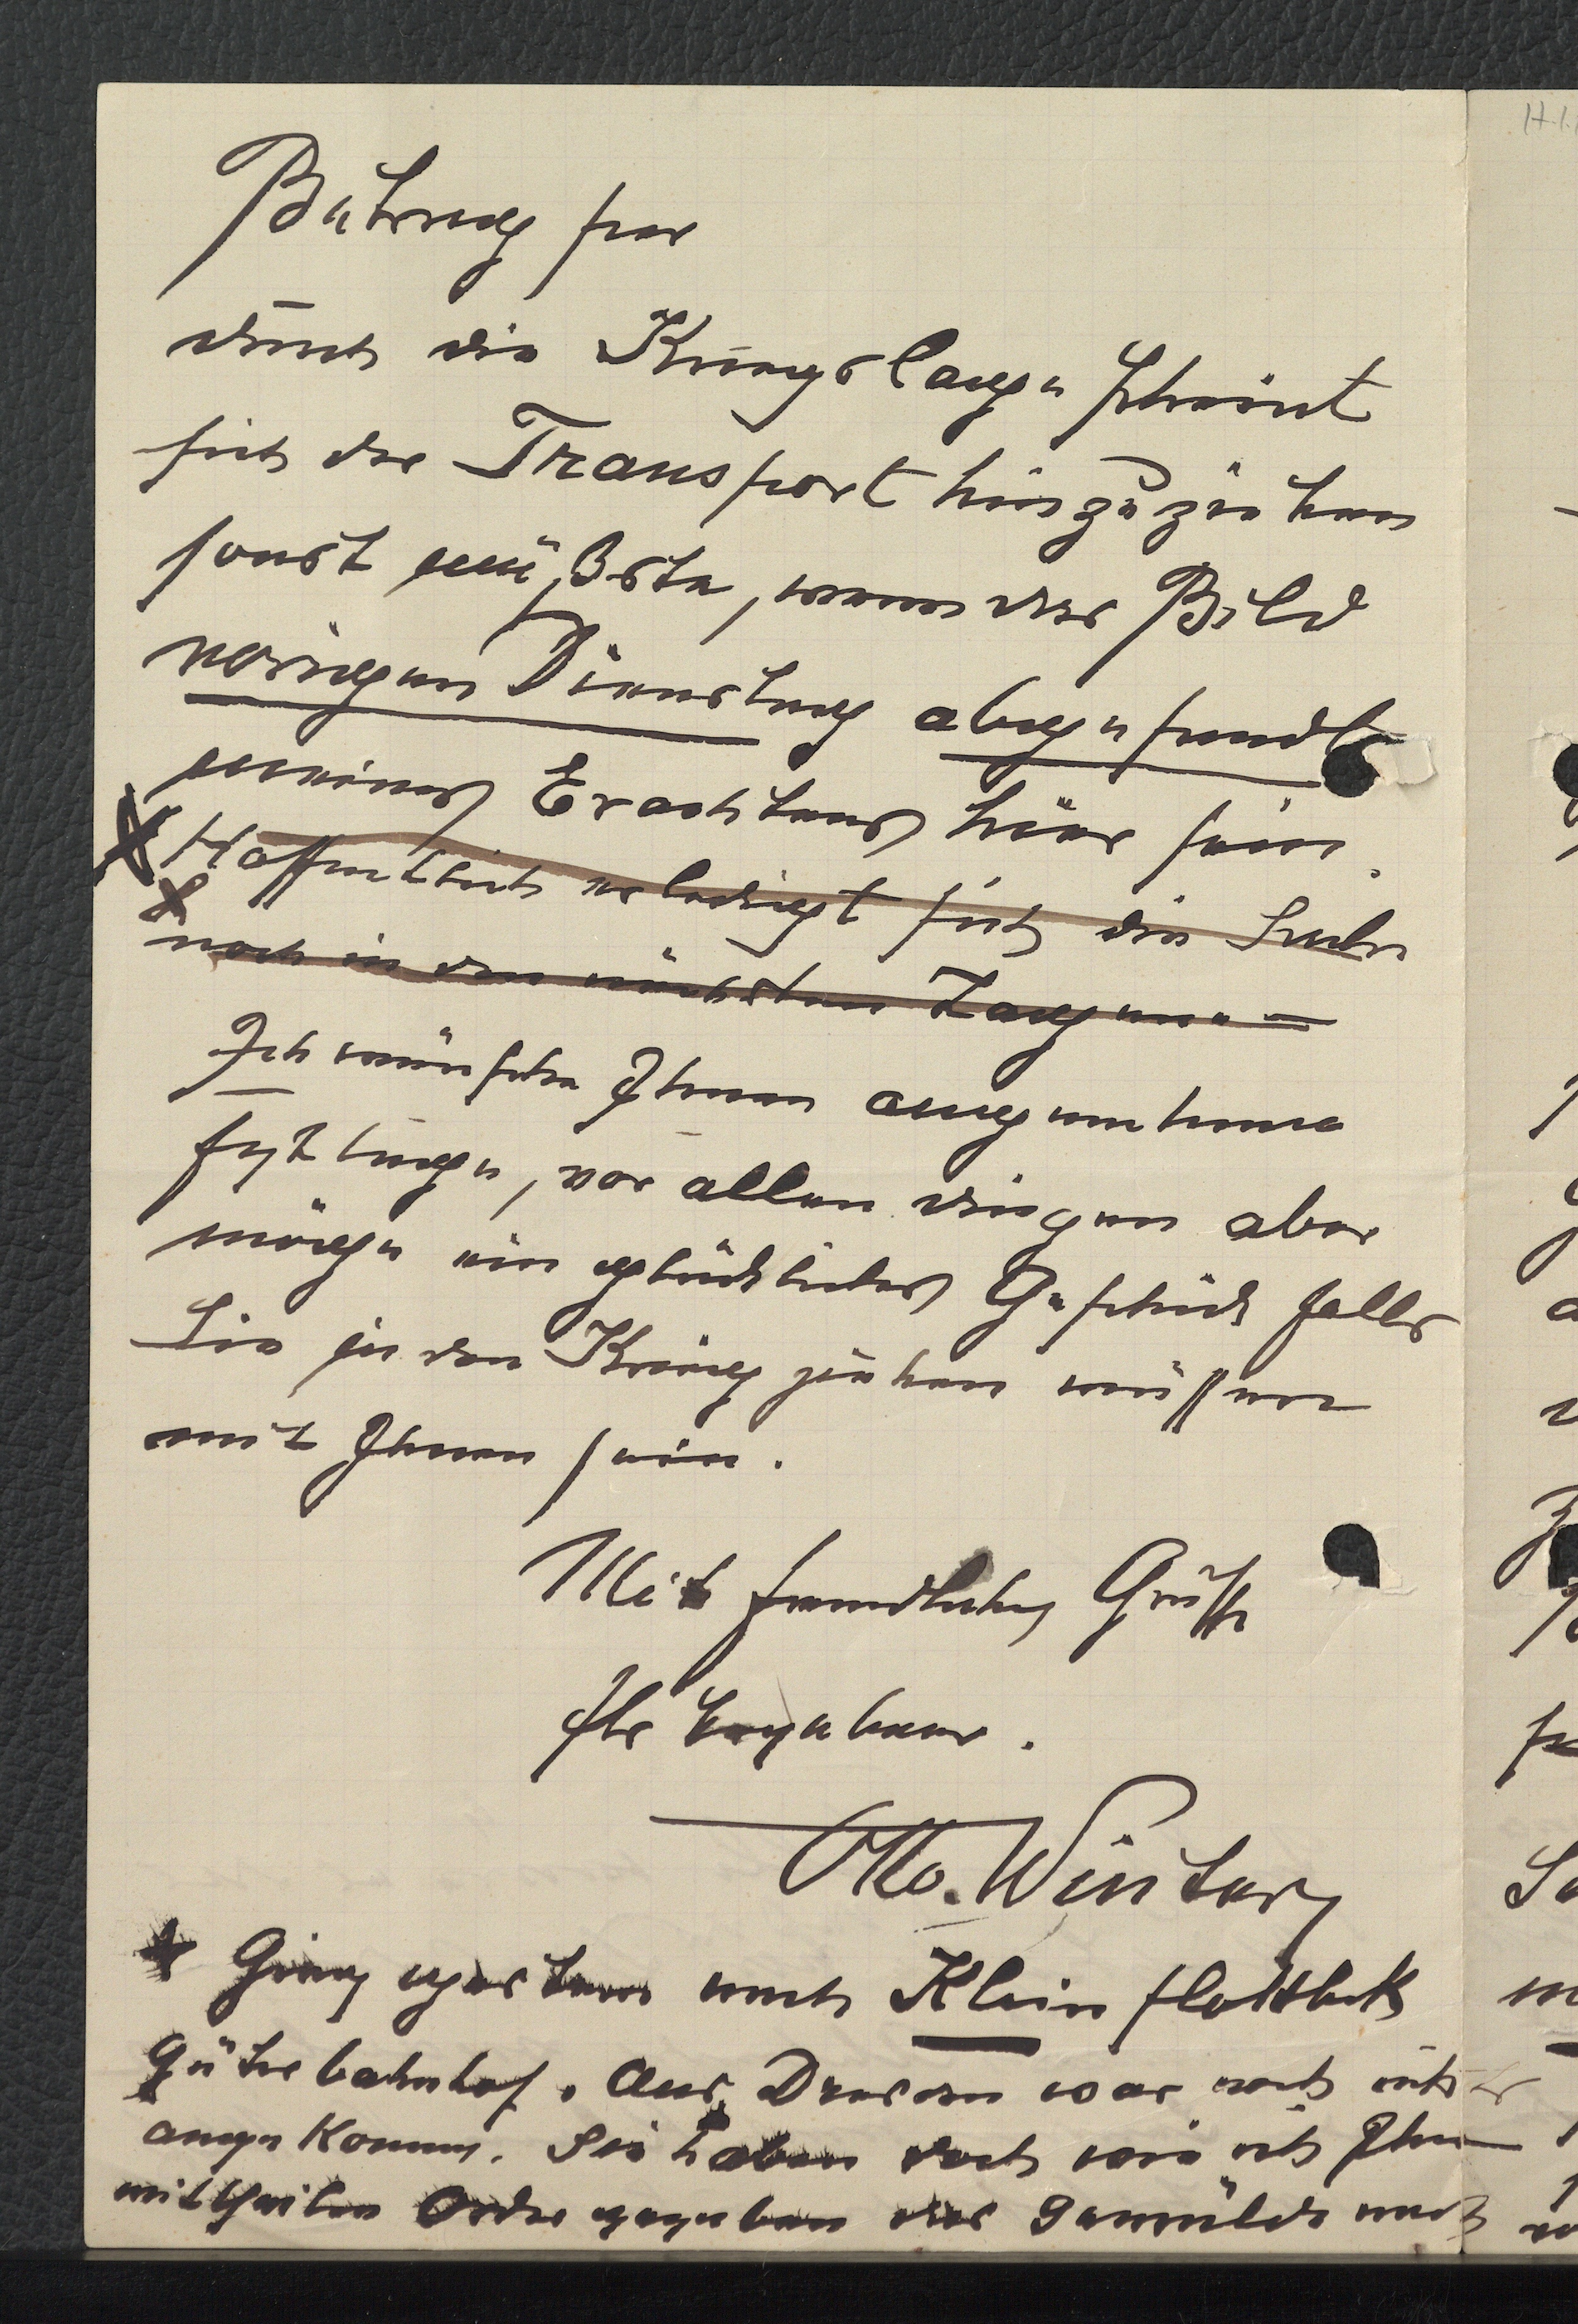 durch die Kriegslage scheint
sich der Transport hinzuziehen
sonst müßte, wenn das Bild
vorigen Dienstag abgesandt
meines Erachtens hier sein.
Hoffentlich erledigt sich die Sache
noch in den nächsten Tagen. –
Ich wünsche Ihnen angenehme
Festtage, vor allen dingen aber
möge ein glückliches Geschick falls
Sie in den Krieg ziehen müssen
mit Ihnen sein.
Mit freundlichen Grüssen
Ihr ergebener.
Otto. Winter
* Ging gestern nach Klein flottbek
Güterbahnhof. Aus Dresden war noch nichts
angekommen. Sie haben doch wie ich Ihnen
mittheilte Ordre gegeben das Gemälde nach